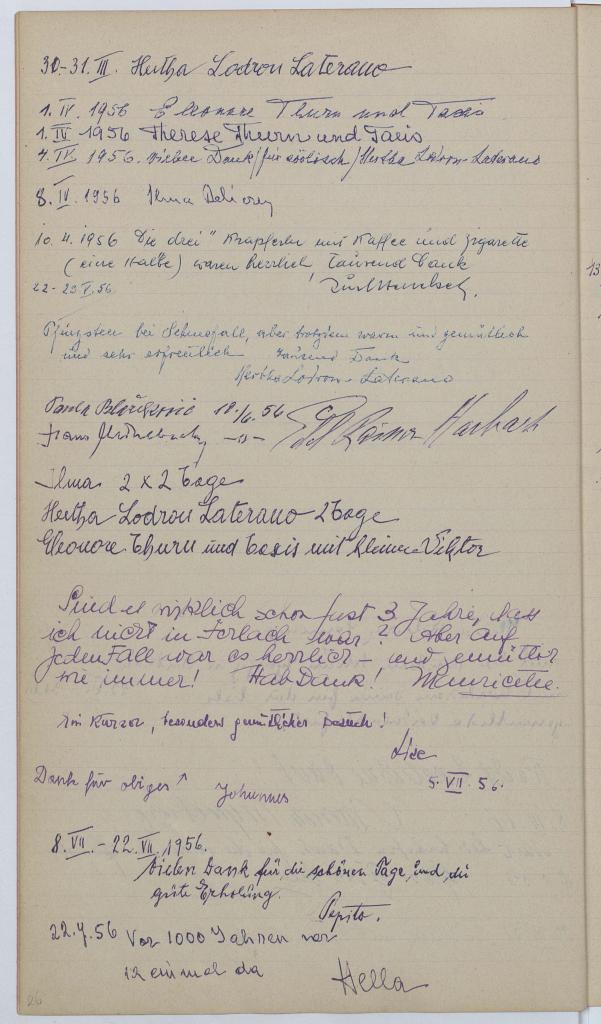 30.-31. III. Hertha Lodron Laterano
1. IV. 1956 Eleonore Thurn und Taxis
1. IV 1956 Therese Thurn und Taxis
4. IV. 1956. Vielen Dank / für / Hertha Lodron-Laterano
8. IV. 1956 Ilma
10. 4. 1956 Die drei " Krapferln mit Kaffee und Zigarette
(eine Halbe) waren herrlich, Tausend Dank
22-23 V. 56
Pfingsten bei Schneefall, aber trotzdem warm und gemütlich
und sehr erfreulich Tausend Dank
Hertha Lodron-Laterano
18./6. 56
Franz -"- Harbach
Ilma 2 x 2 Tage
Hertha Lodron Laterano 2 Tage
Eleonore Thurn und Taxis mit kleinem Viktor
Sind es wirklich schon fast 3 Jahre, dass
ich nicht in Ferlach war? Aber auf
jeden Fall war es herrlich – und gemütlich
wie immer! Hab Dank!
Ein kurzer, besonders gemütlicher Besuch!
5. VII. 56.
Dank für obiges ↑ Johannes
8. VII. - 22. VII. 1956.
Vielen Dank für die schönen Tage und die
gute Erholung.
Pepito.
22.7.56 Vor 1000 Jahren war
ich einmal da
Hella
26
13